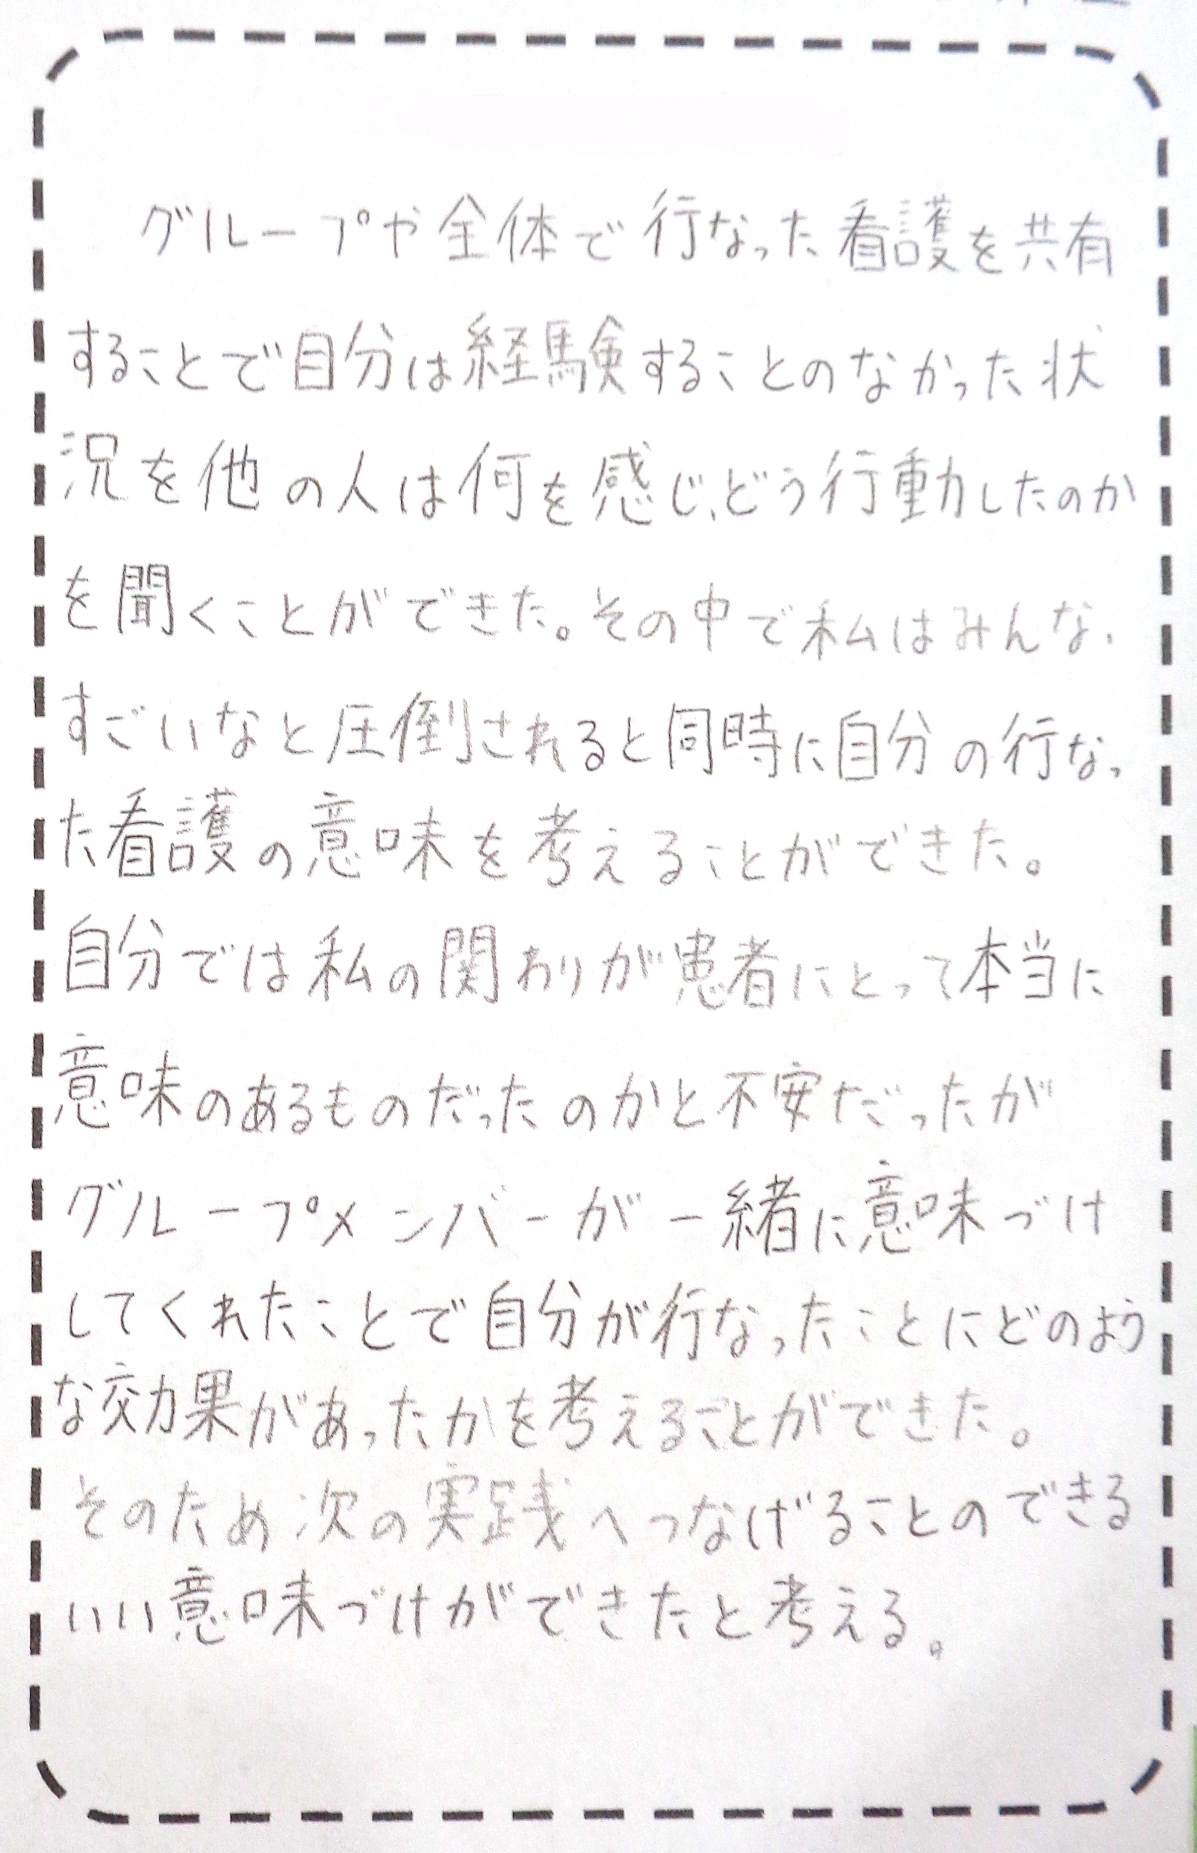 グループや全体で行なった看護を共有
することで自分は経験することのなかった状
況を他の人は何を感じ、どう行動したのか
を聞くことができた。その中で私はみんな、
すごいなと圧倒されると同時に自分の行なっ
た看護の意味を考えることができた。
自分では私の関わりが患者にとって本当に
意味のあるものだったのかと不安だったが
グループメンバーが一緒に意味づけ
してくれたことで自分が行なったことにどのよう
な効果があったかを考えることができた。
そのため次の実践へつなげることのできる
いい意味づけができたと考える。